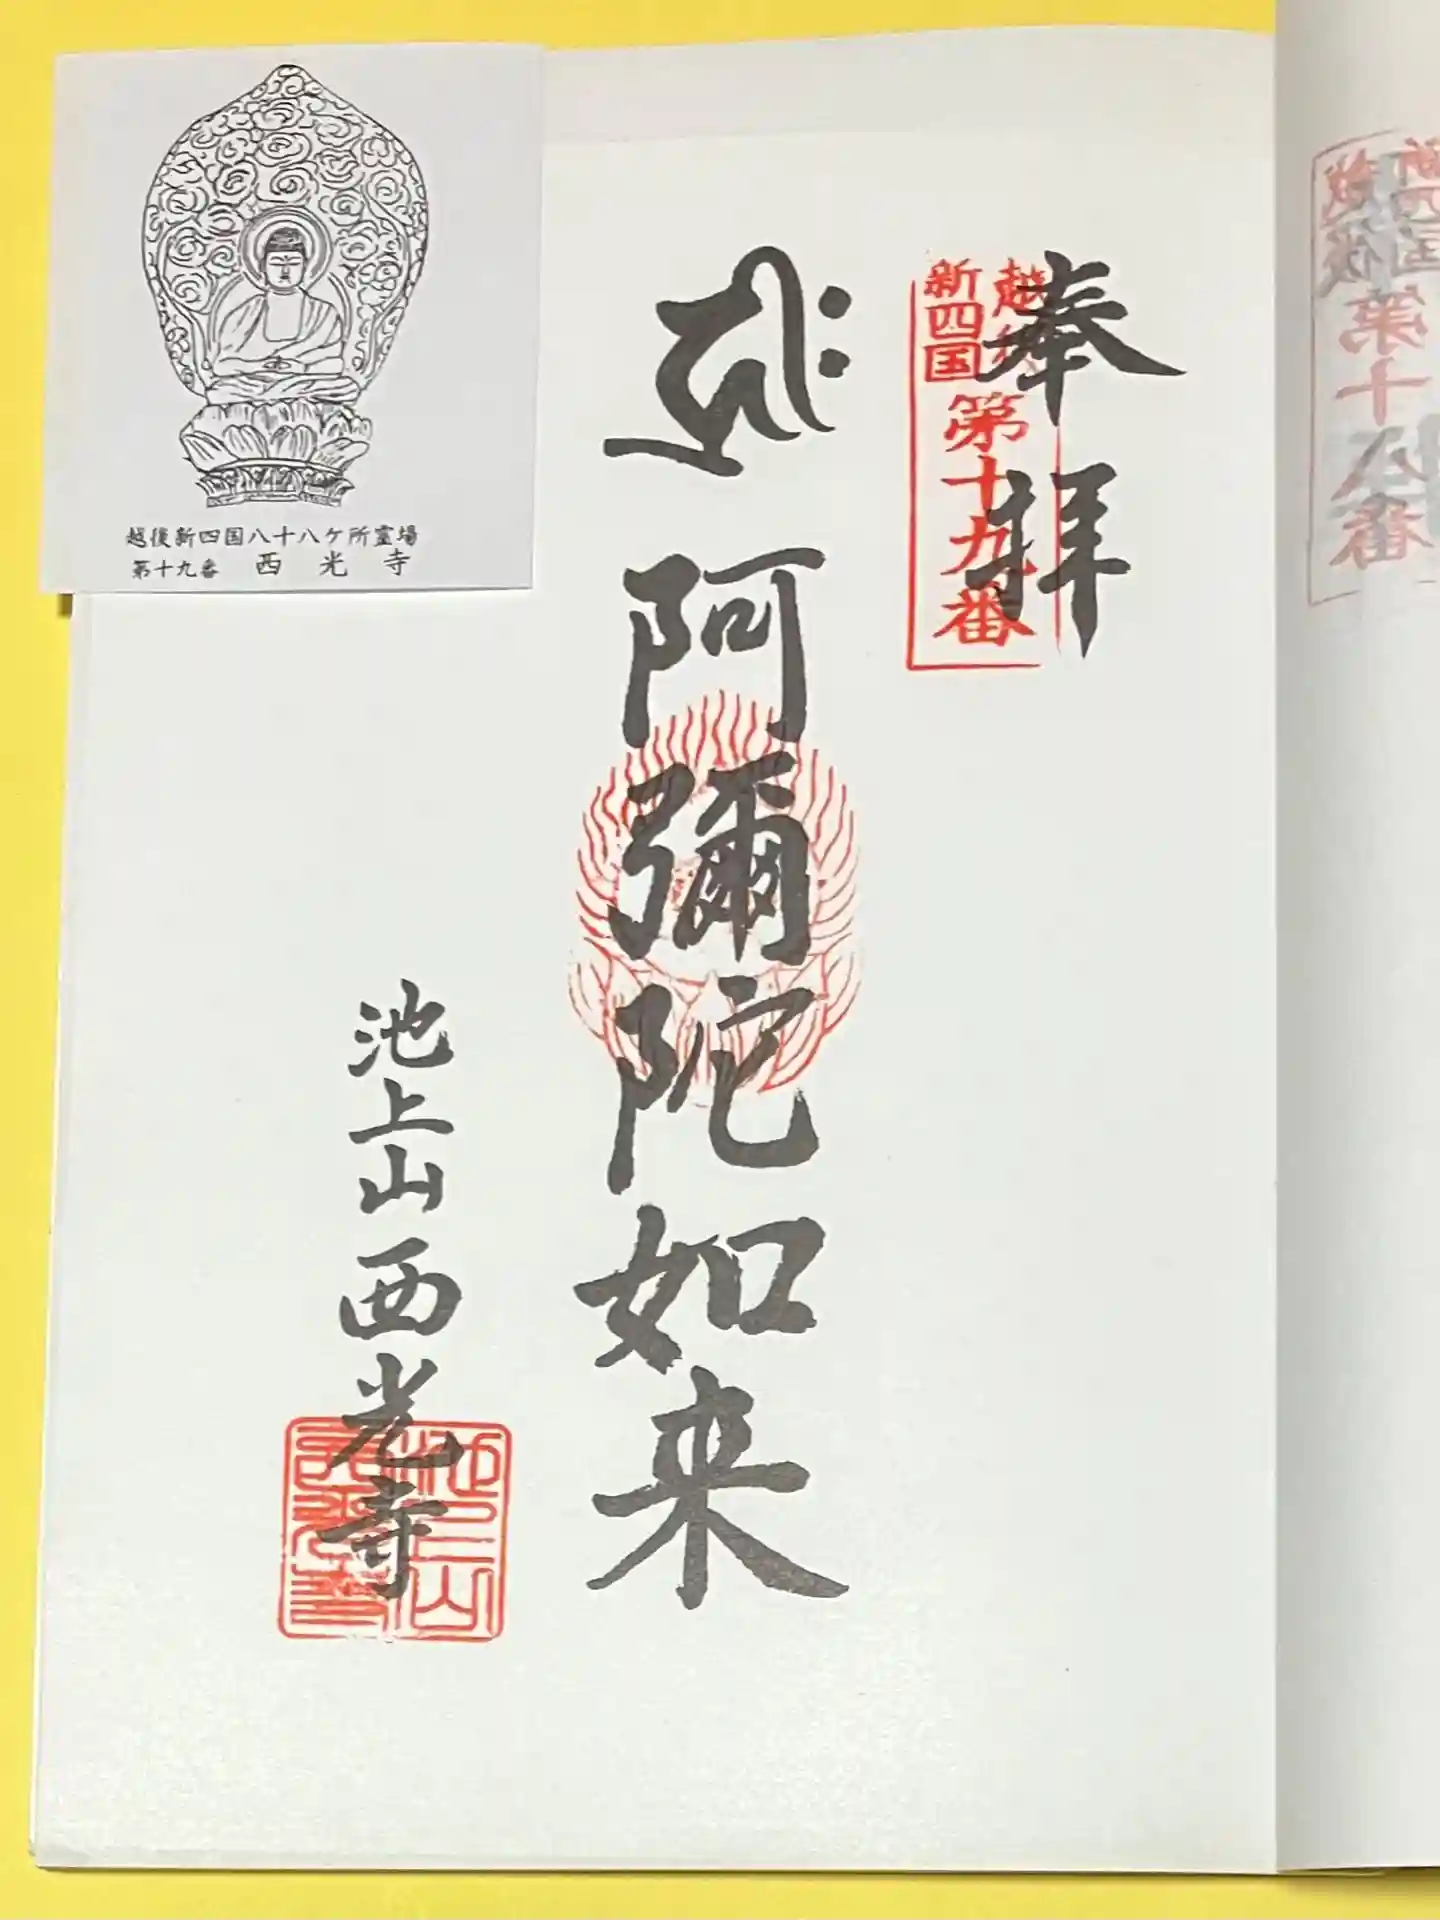 奉拝
越後
新四国
第十九番
𑖮𑖿𑖨𑖱𑖾
阿彌陀如来
池上山西光寺
越後新四国八十八ケ所霊場
第十九番 西光寺